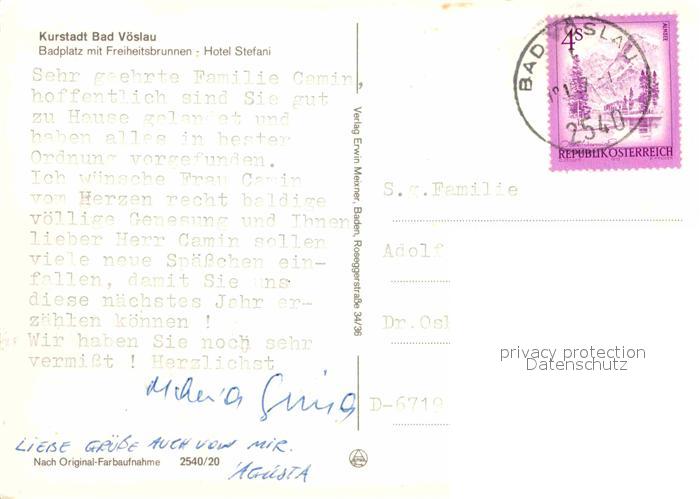 Kurstadt Bad Vöslau
Badplatz mit Freiheitsbrunnen - Hotel Stefani
Sehr geehrte Familie Camin,
hoffentlich sind Sie gut
zu Hause gelandet und
haben alles in bester
Ordnung vorgefunden.
Ich wünsche Frau Camin
vom Herzen recht baldige
völlige Genesung und Ihnen
lieber Herr Camin sollen
viele neue Späßchen ein-
fallen, damit Sie uns
diese nächstes Jahr er-
zählen können !
Wir haben Sie noch sehr
vermißt ! Herzlichst
LIEBE GRÜßE AUCH VON MIR.
Nach Original-Farbaufnahme 2540/20
Verlag Erwin Meixner, Baden, Roseggerstraße 34/36
4S
ALMSEE
REPUBLIK ÖSTERREICH
BAD VÖSLAU
2540
S.g.Familie
Adolf
Dr.Osk
privacy protection
Datenschutz
D-6719